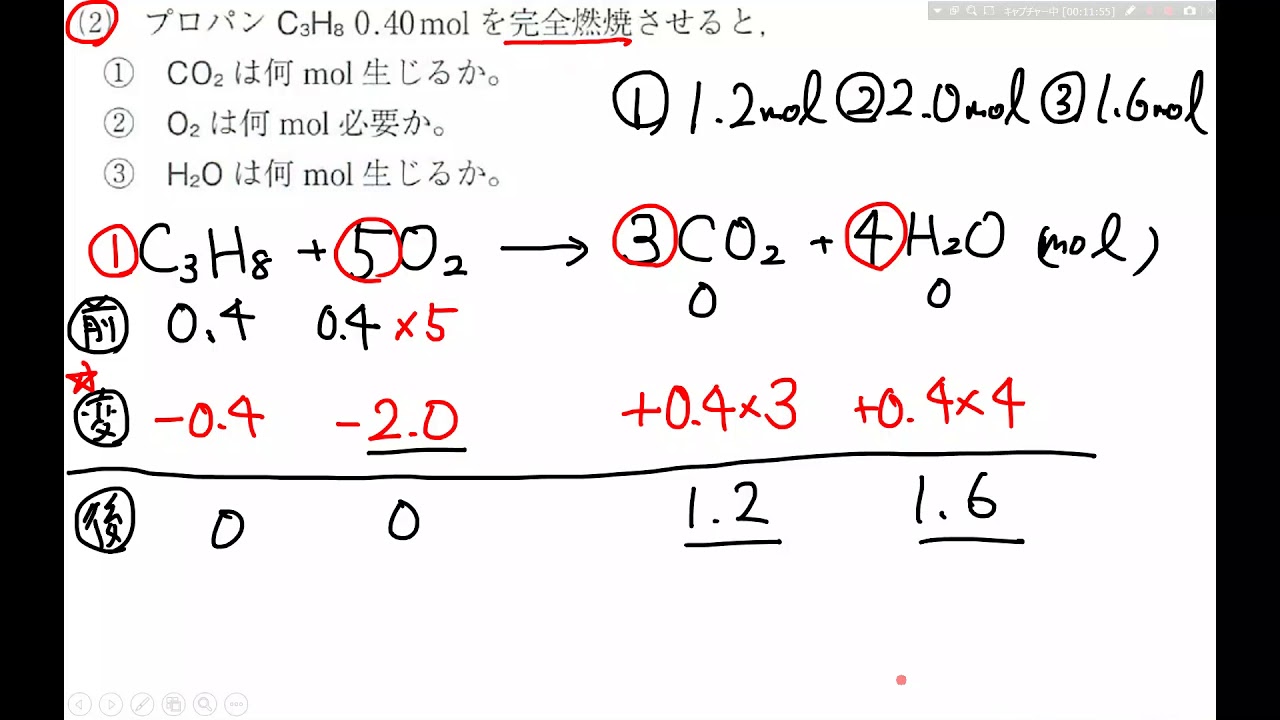 キャプチャー中 [00:11:55]
(2) プロパン C₃H₈ 0.40 mol を完全燃焼させると,
① CO₂ は何 mol 生じるか。
② O₂ は何 mol 必要か。
③ H₂O は何 mol 生じるか。
① 1.2mol ② 2.0mol ③ 1.6mol
① C₃H₈ + 5O₂ → 3CO₂ + 4H₂O (mol)
前 0.4 0.4×5 0 0
☆
変 -0.4 -2.0 +0.4×3 +0.4×4
後 0 0 1.2 1.6